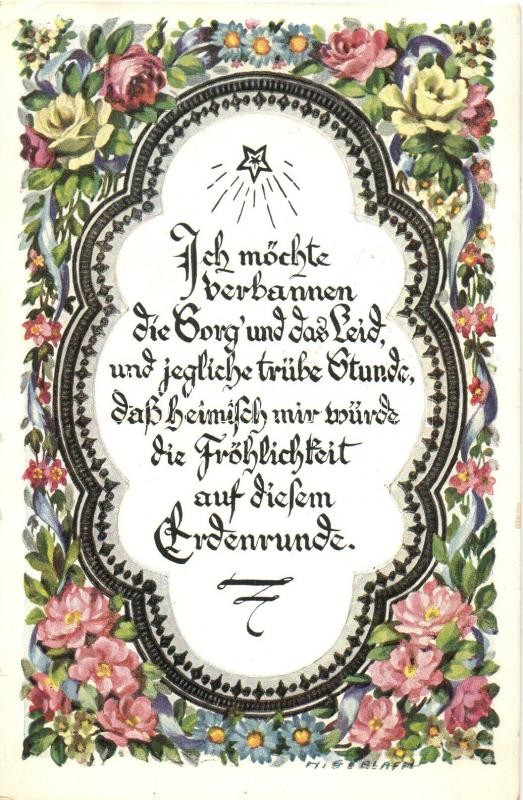 Ich möchte
verbannen
die Sorg' und das Leid,
und jegliche trübe Stunde,
daß heimisch mir würde
die Fröhlichkeit
auf diesem
Erdenrunde.